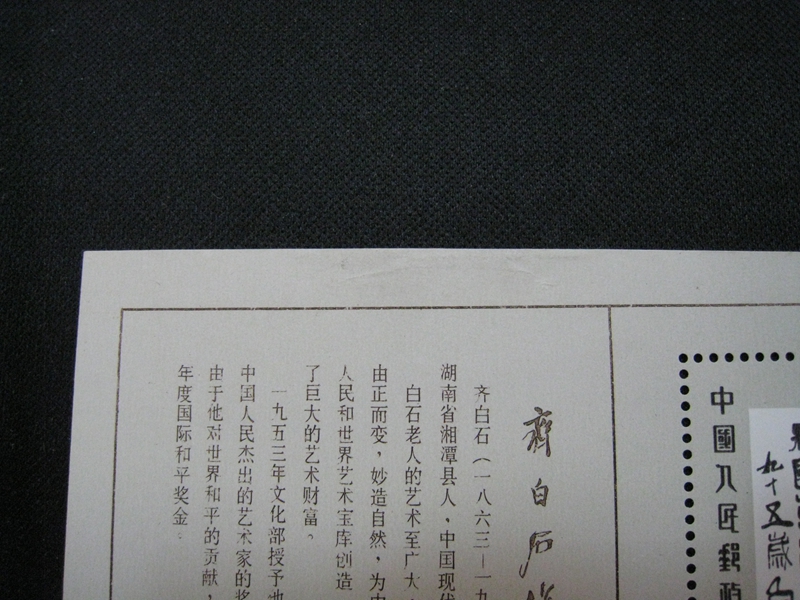 中国人民郵
九十五歲白
齐白石
齐白石（一八六三—一九
湖南省湘潭县人，中国现代
白石老人的艺术至广大，
由正而变，妙造自然，为中
人民和世界艺术宝库创造
了巨大的艺术财富。
一九五三年文化部授予他
中国人民杰出的艺术家的奖
由于他对世界和平的贡献，
年度国际和平奖金。